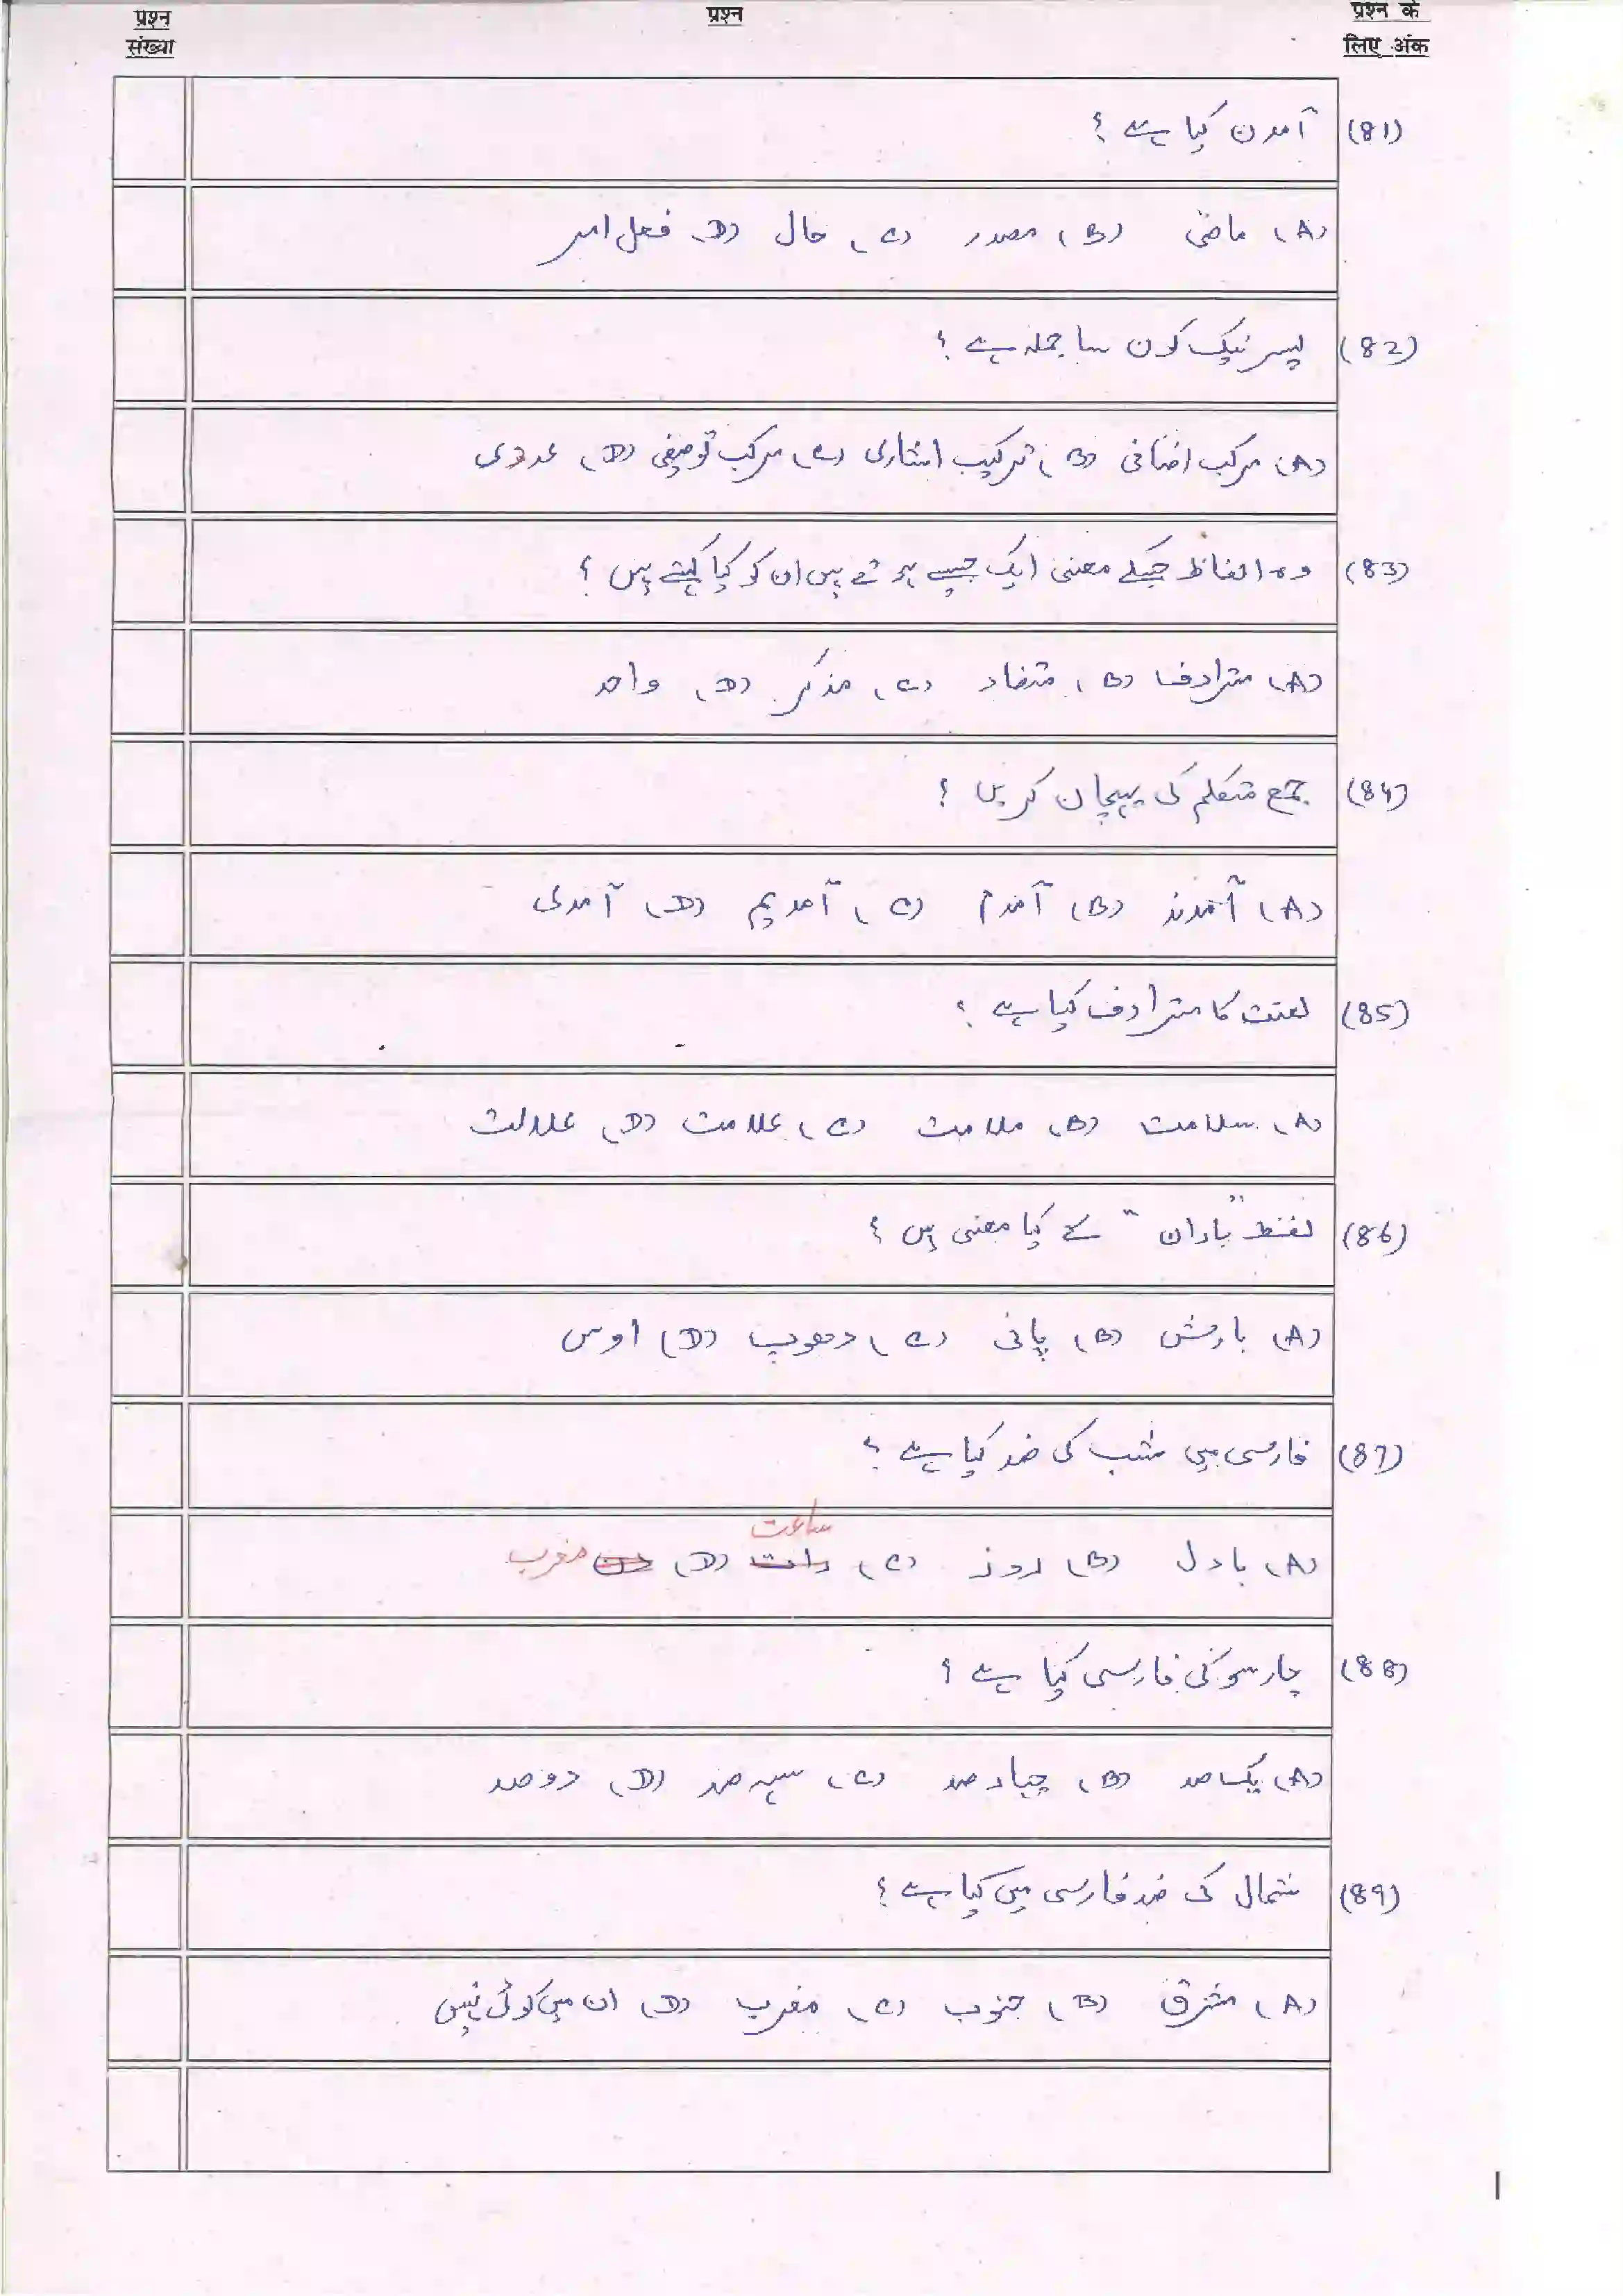 प्रश्न संख्या
प्रश्न
प्रश्न के लिए अंक
(81) آمدن کیا ہے ؟
(A) ماضی (B) مصدر (C) حال (D) فعل امر
(82) پسر نیک کون سا جملہ ہے ؟
(A) مرکب اضافی (B) ترکیب اشاری (C) مرکب توصیفی (D) عددی
(83) وہ الفاظ جنکے معنی ایک جیسے ہوتے ہیں ان کو کیا کہتے ہیں ؟
(A) مترادف (B) متضاد (C) مذکر (D) واحد
(84) جمع متکلم کی پہچان کریں ؟
(A) آمدند (B) آمدم (C) آمدیم (D) آمدی
(85) لعنت کا مترادف کیا ہے ؟
(A) سلامت (B) ملامت (C) علامت (D) علالت
(86) لفظ "باران" کے کیا معنی ہیں ؟
(A) بارش (B) پانی (C) دھوپ (D) اوس
(87) فارسی میں شب کی ضد کیا ہے ؟
(A) بادل (B) روز (C) ساعت (D) مغرب
(88) چار سو کی فارسی کیا ہے ؟
(A) یک صد (B) چہار صد (C) سہ صد (D) دو صد
(89) شمال کی ضد فارسی میں کیا ہے ؟
(A) مشرق (B) جنوب (C) مغرب (D) ان میں کوئی نہیں